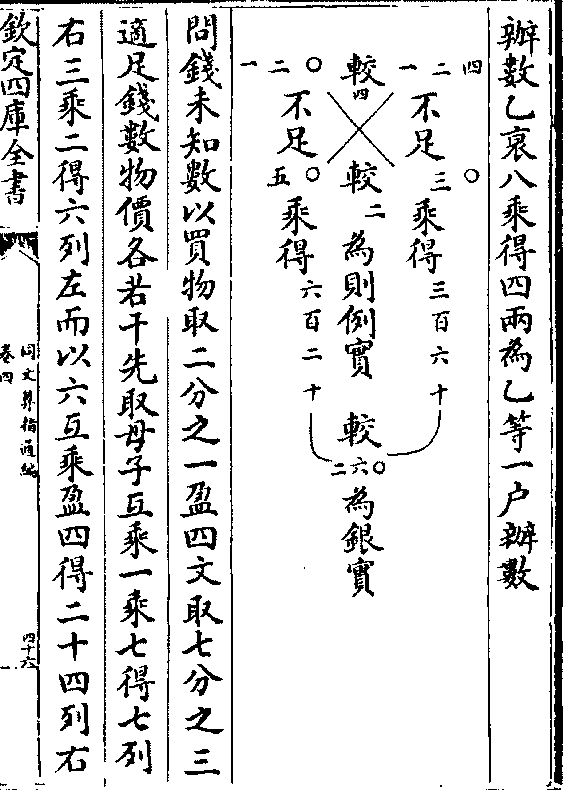 辦數乙衰八乘得四兩為乙等一户辦數
一二四 不足三〇 乘得三百六十
較四 較二 為則例實 較二六〇 為銀實
一二〇 不足五〇 乘得六百二十
問錢未知數以買物取二分之一盈四文取七分之三
適足錢數物價各若干先取母子互乘一乘七得七列
右三乘二得六列左而以六互乘盈四得二十四列右
欽定四庫全書
同文算指通編
卷四
四十六